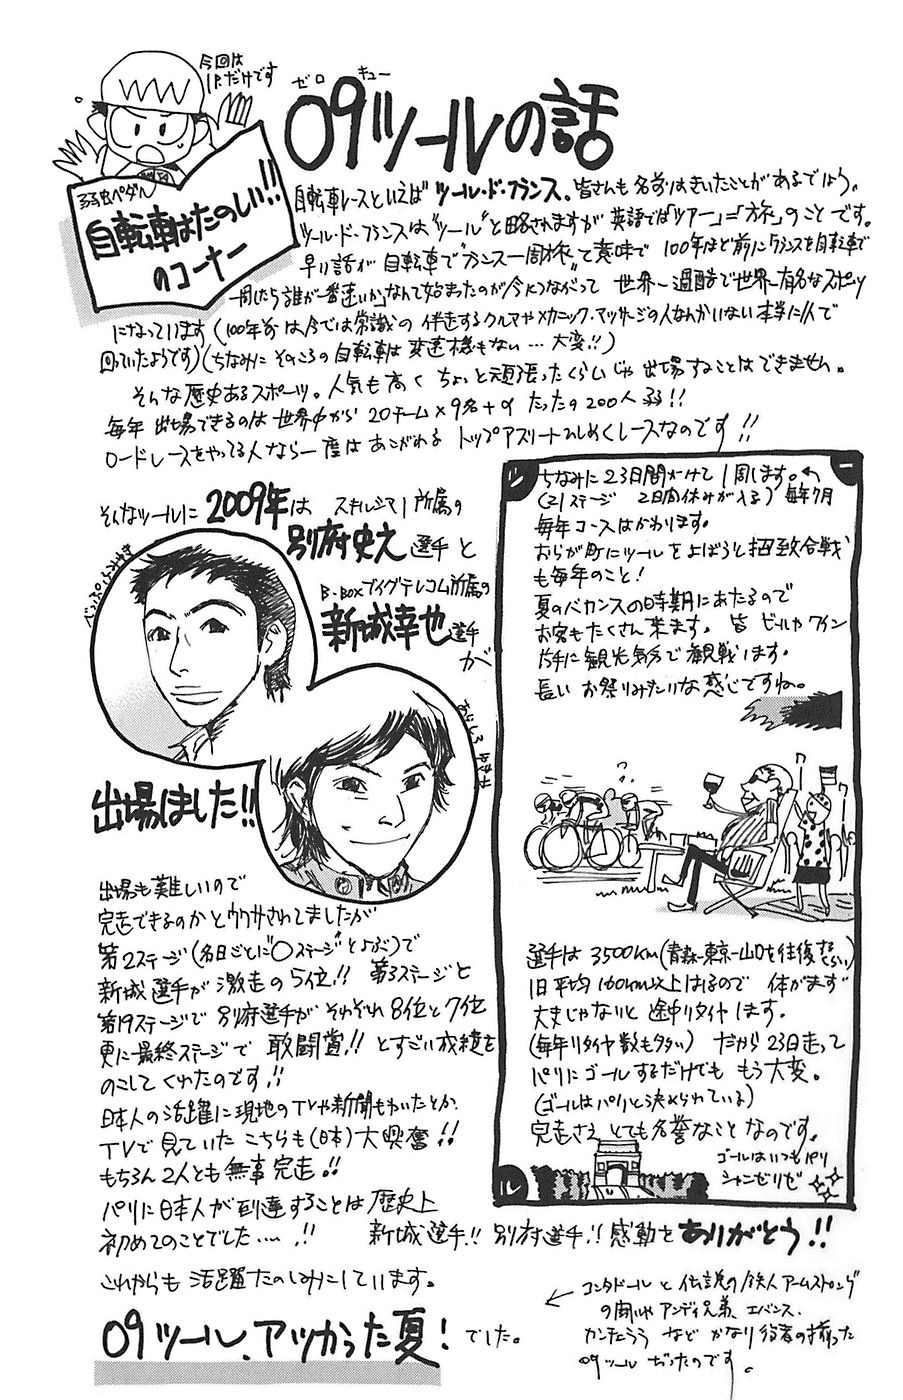 今回は
1P.だけです
弱虫ペダル
自転車はたのしい!!
のコーナー
ゼロ キュー
09ツールの話
自転車レースといえば ツール・ド・フランス、皆さんも名前はきいたことがあるでしょう。
ツール・ド・フランスは"ツール"と略されますが 英語では「ツアー」=「旅」のことです。
早い話が 自転車で"フランス一周旅"って意味で 100年ほど前に「フランスを自転車で
一周したら誰が一番速いか」なんて始まったのが今につながって 世界一過酷で世界一有名なスポーツ
になっています (100年前は今では常識の 伴走するクルマやメカニック・マッサージの人なんかいない 本当に1人で
回っていたようです)(ちなみに そのころの自転車は 変速機もない… 大変!!)
そんな歴史あるスポーツ。人気も高く ちょっと頑張ったくらいじゃ出場することはできません。
毎年 出場できるのは世界中から 20チーム×9名+α たったの200人弱!!
ロードレースをやってる人なら一度はあこがれる トップアスリートひしめくレースなのです!!
そんなツールに 2009年は スキル・シマノ所属の
別府史之選手と
べっぷふみゆき
B・BOXブイグテレコム所属の
新城幸也選手
が
あらしろ ゆきや
出場しました!!
出場も難しいので
完走できるのかとウワサされてましたが
第2ステージ(名日ごとに"○ステージ"とよぶ)で
新城選手が 激走の5位!! 第3ステージと
第19ステージで 別府選手が それぞれ8位と7位
更に最終ステージで 敢闘賞!! とすごい成績を
のこしてくれたのです!!
日本人の活躍に現地のTVや新聞もわいたとか、
TVで見ていた こちらも(日本)大興奮!!
もちろん2人とも無事完走!!
パリに日本人が到達することは歴史上
初めてのことでした…!!
新城選手!! 別府選手!! 感動をありがとう!!
これからも 活躍たのしみにしています。
09ツール、アツかった夏! でした。
ツ
ー
ル
ちなみに23日間かけて1周します。
(21ステージ 2日間休みが入る) 毎年7月
毎年コースはかわります。
おらが町にツールをよぼうと招致合戦
も毎年のこと!
夏のバカンスの時期にあたるので
お客もたくさん来ます。皆 ビールやワイン
片手に観光気分で観戦します。
長い お祭りみたいな感じですね。
選手は 3500km(青森-東京-山口を往復するくらい)
1日平均160km以上はしるので 体がまず
丈夫じゃないと 途中リタイヤします。
(毎年リタイヤ数も多い) だから23日走って
パリにゴールするだけでも もう大変。
(ゴールはパリと決められている)
完走さえ とても名誉なことなのです。
ゴールはいつもパリ
シャンゼリゼ
コンタドールと伝説の鉄人アームストロング
の闘いや アンディ兄弟、エバンス、
カンチェラーラ など かなり役者の揃った
09ツール だったのです。